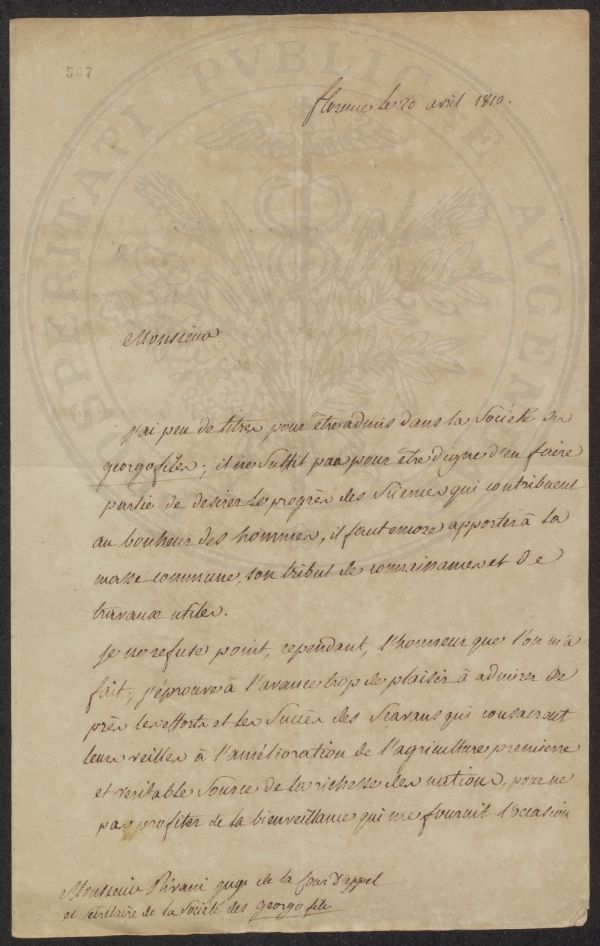 507
PROSPERITATI PVBLICAE AVGENDAE
florence le 20 avril 1810.
Monsieur
j'ai peu de titres pour être admis dans la Société des
georgofiles; il ne suffit pas pour être digne d'en faire
partie de desirer les progrès des Sciences qui contribuent
au bonheur des hommes, il faut encore apporter à la
masse commune, son tribut de connaissances et de
travaux utiles.
je ne refuse point, cependant, l'honneur que l'on m'a
fait; j'éprouve à l'avance trop de plaisir à admirer de
près les efforts et les Succès des Scavans qui consacrent
leurs veilles à l'amélioration de l'agriculture premierre
et veritable Source de la richesse des nations, pour ne
pas profiter de la bienveillance qui me fournit l'occasion
Monsieur juge de la Cour d'appel
et secrétaire de la Société des georgofile